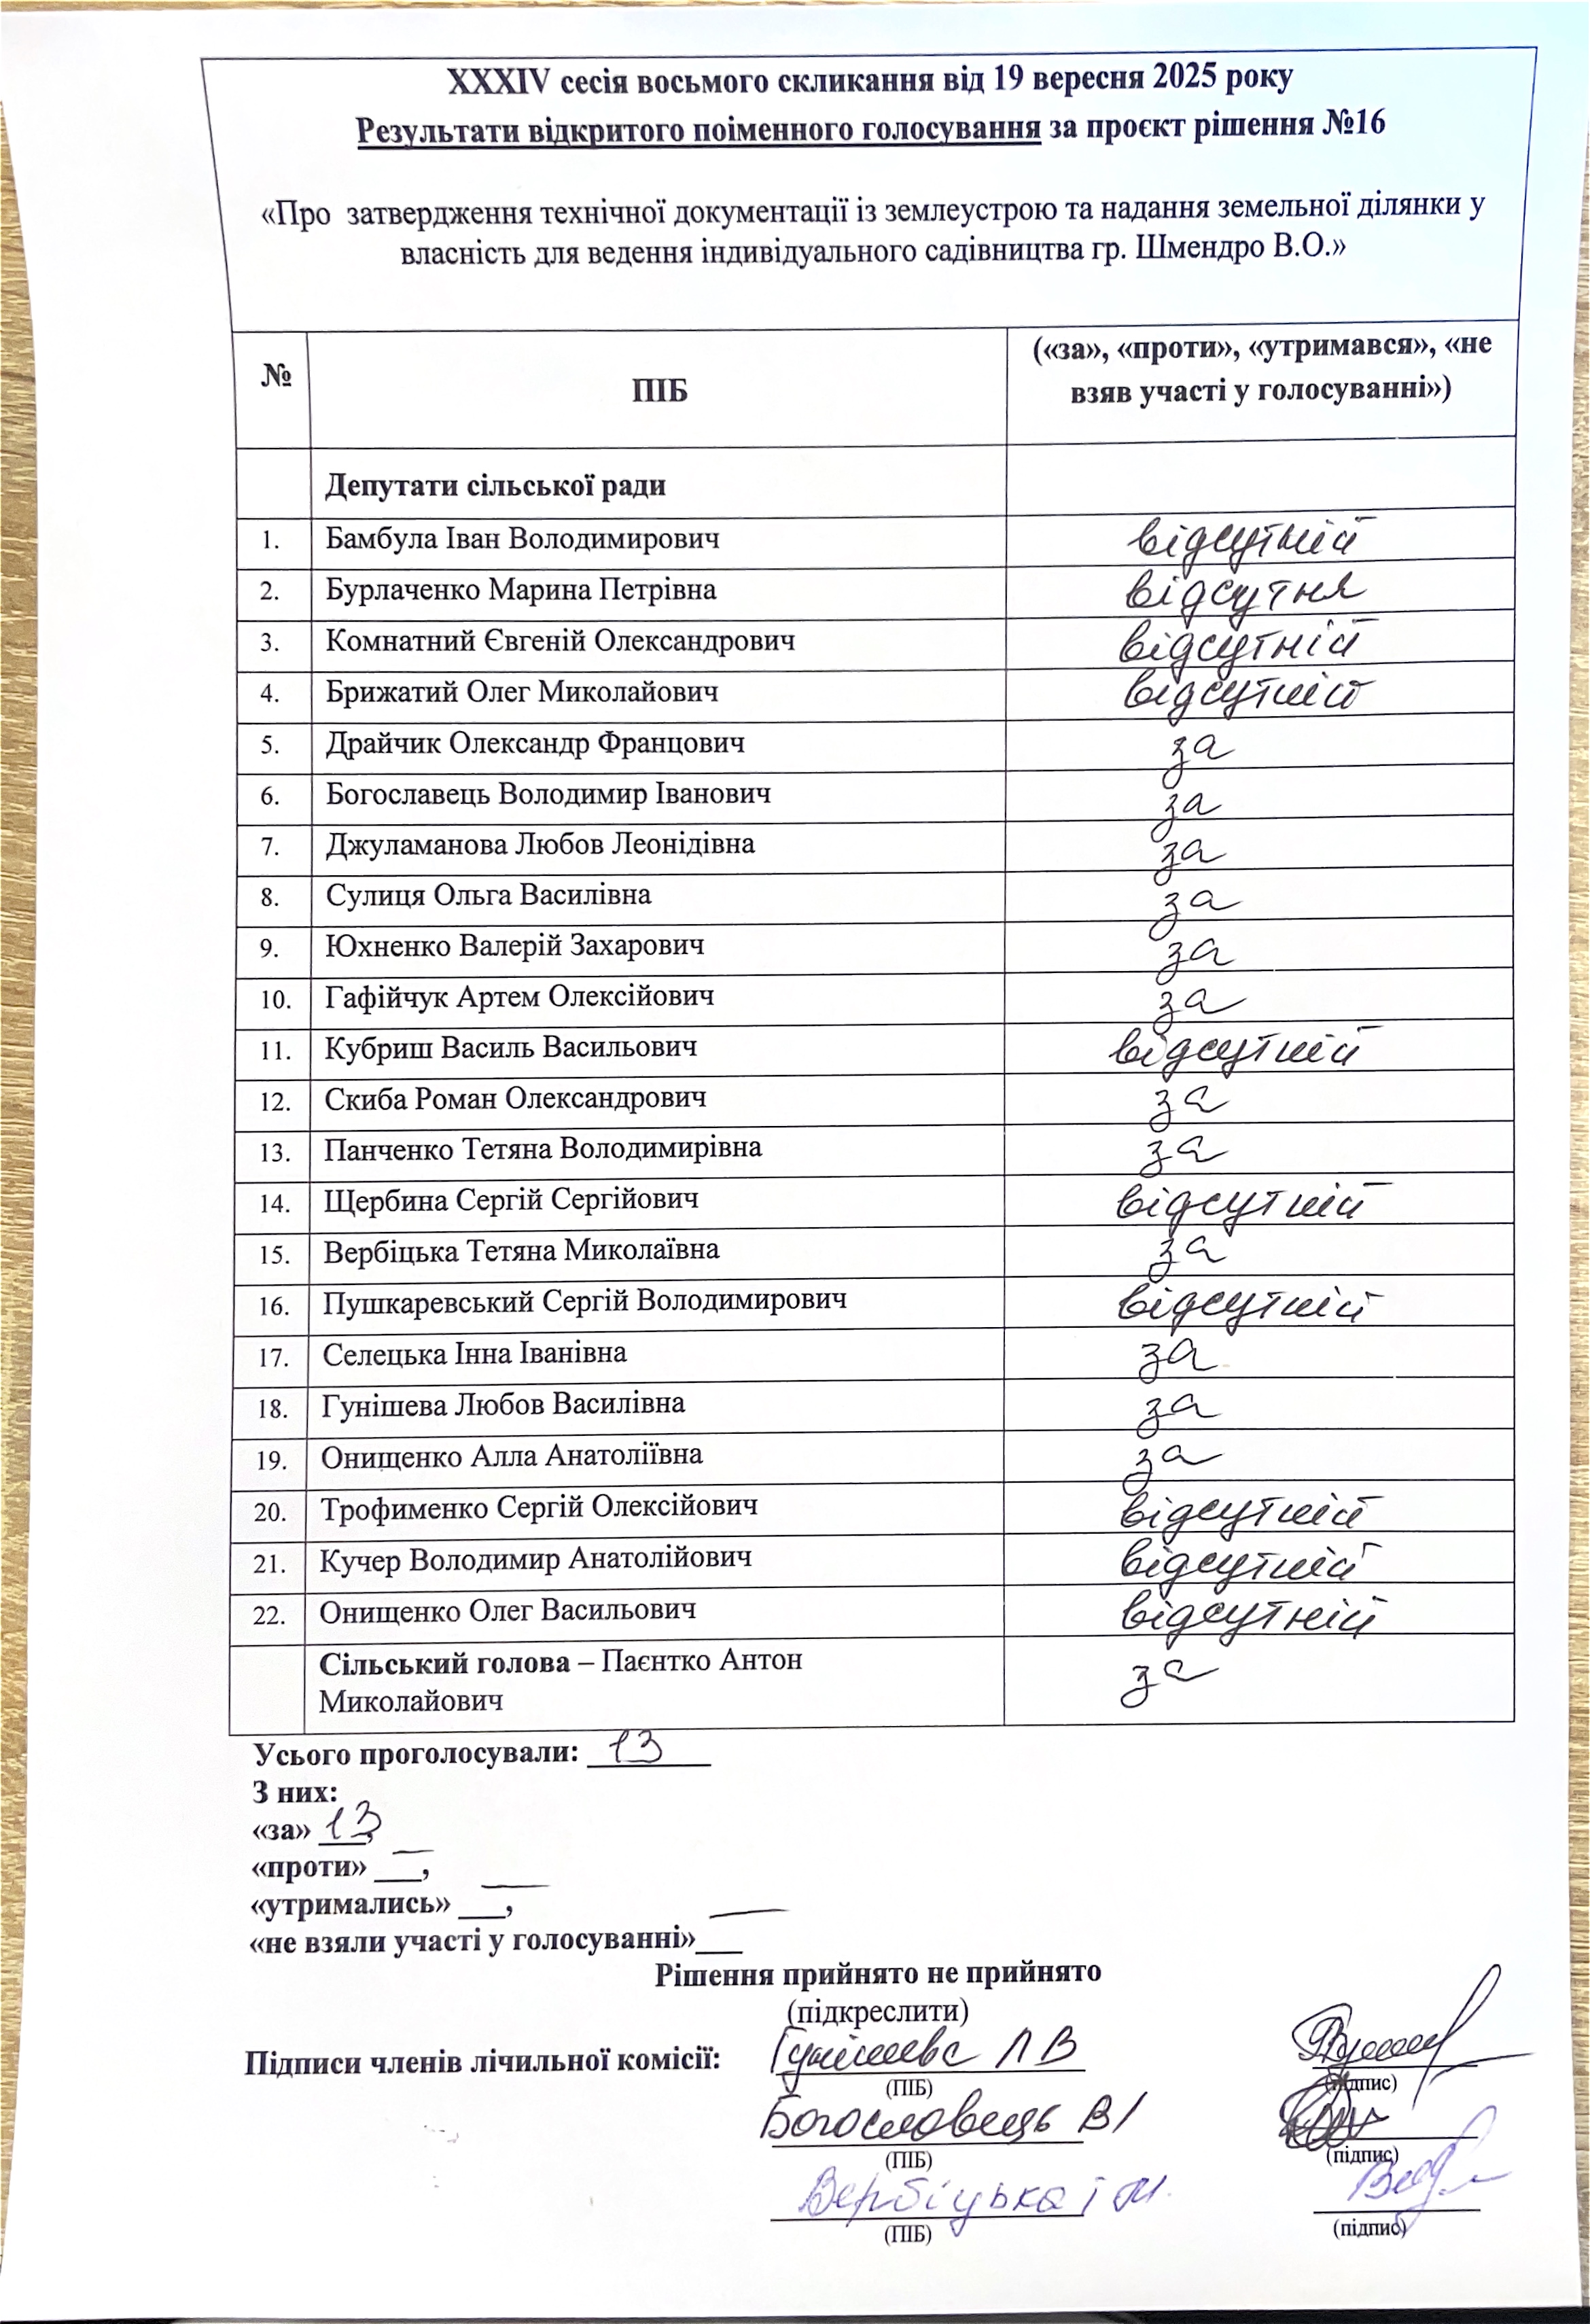 XXXIV сесія восьмого скликання від 19 вересня 2025 року
Результати відкритого поіменного голосування за проєкт рішення №16
«Про затвердження технічної документації із землеустрою та надання земельної ділянки у
власність для ведення індивідуального садівництва гр. Шмендро В.О.»
№ ПІБ («за», «проти», «утримався», «не
взяв участі у голосуванні»)
Депутати сільської ради
1. Бамбула Іван Володимирович відсутній
2. Бурлаченко Марина Петрівна відсутня
3. Комнатний Євгеній Олександрович відсутній
4. Брижатий Олег Миколайович відсутній
5. Драйчик Олександр Францович за
6. Богославець Володимир Іванович за
7. Джуламанова Любов Леонідівна за
8. Сулиця Ольга Василівна за
9. Юхненко Валерій Захарович за
10. Гафійчук Артем Олексійович за
11. Кубриш Василь Васильович відсутній
12. Скиба Роман Олександрович за
13. Панченко Тетяна Володимирівна за
14. Щербина Сергій Сергійович відсутній
15. Вербіцька Тетяна Миколаївна за
16. Пушкаревський Сергій Володимирович відсутній
17. Селецька Інна Іванівна за
18. Гунішева Любов Василівна за
19. Онищенко Алла Анатоліївна за
20. Трофименко Сергій Олексійович відсутній
21. Кучер Володимир Анатолійович відсутній
22. Онищенко Олег Васильович відсутній
Сільський голова – Паєнтко Антон
Миколайович за
Усього проголосували: 13
З них:
«за» 13,
«проти» ___,
«утримались» ___,
«не взяли участі у голосуванні»___
Рішення прийнято не прийнято
(підкреслити)
Підписи членів лічильної комісії: Гунішева Л В
(ПІБ) (підпис)
Богословець В І
(ПІБ) (підпис)
Вербіцька
(ПІБ) (підпис)